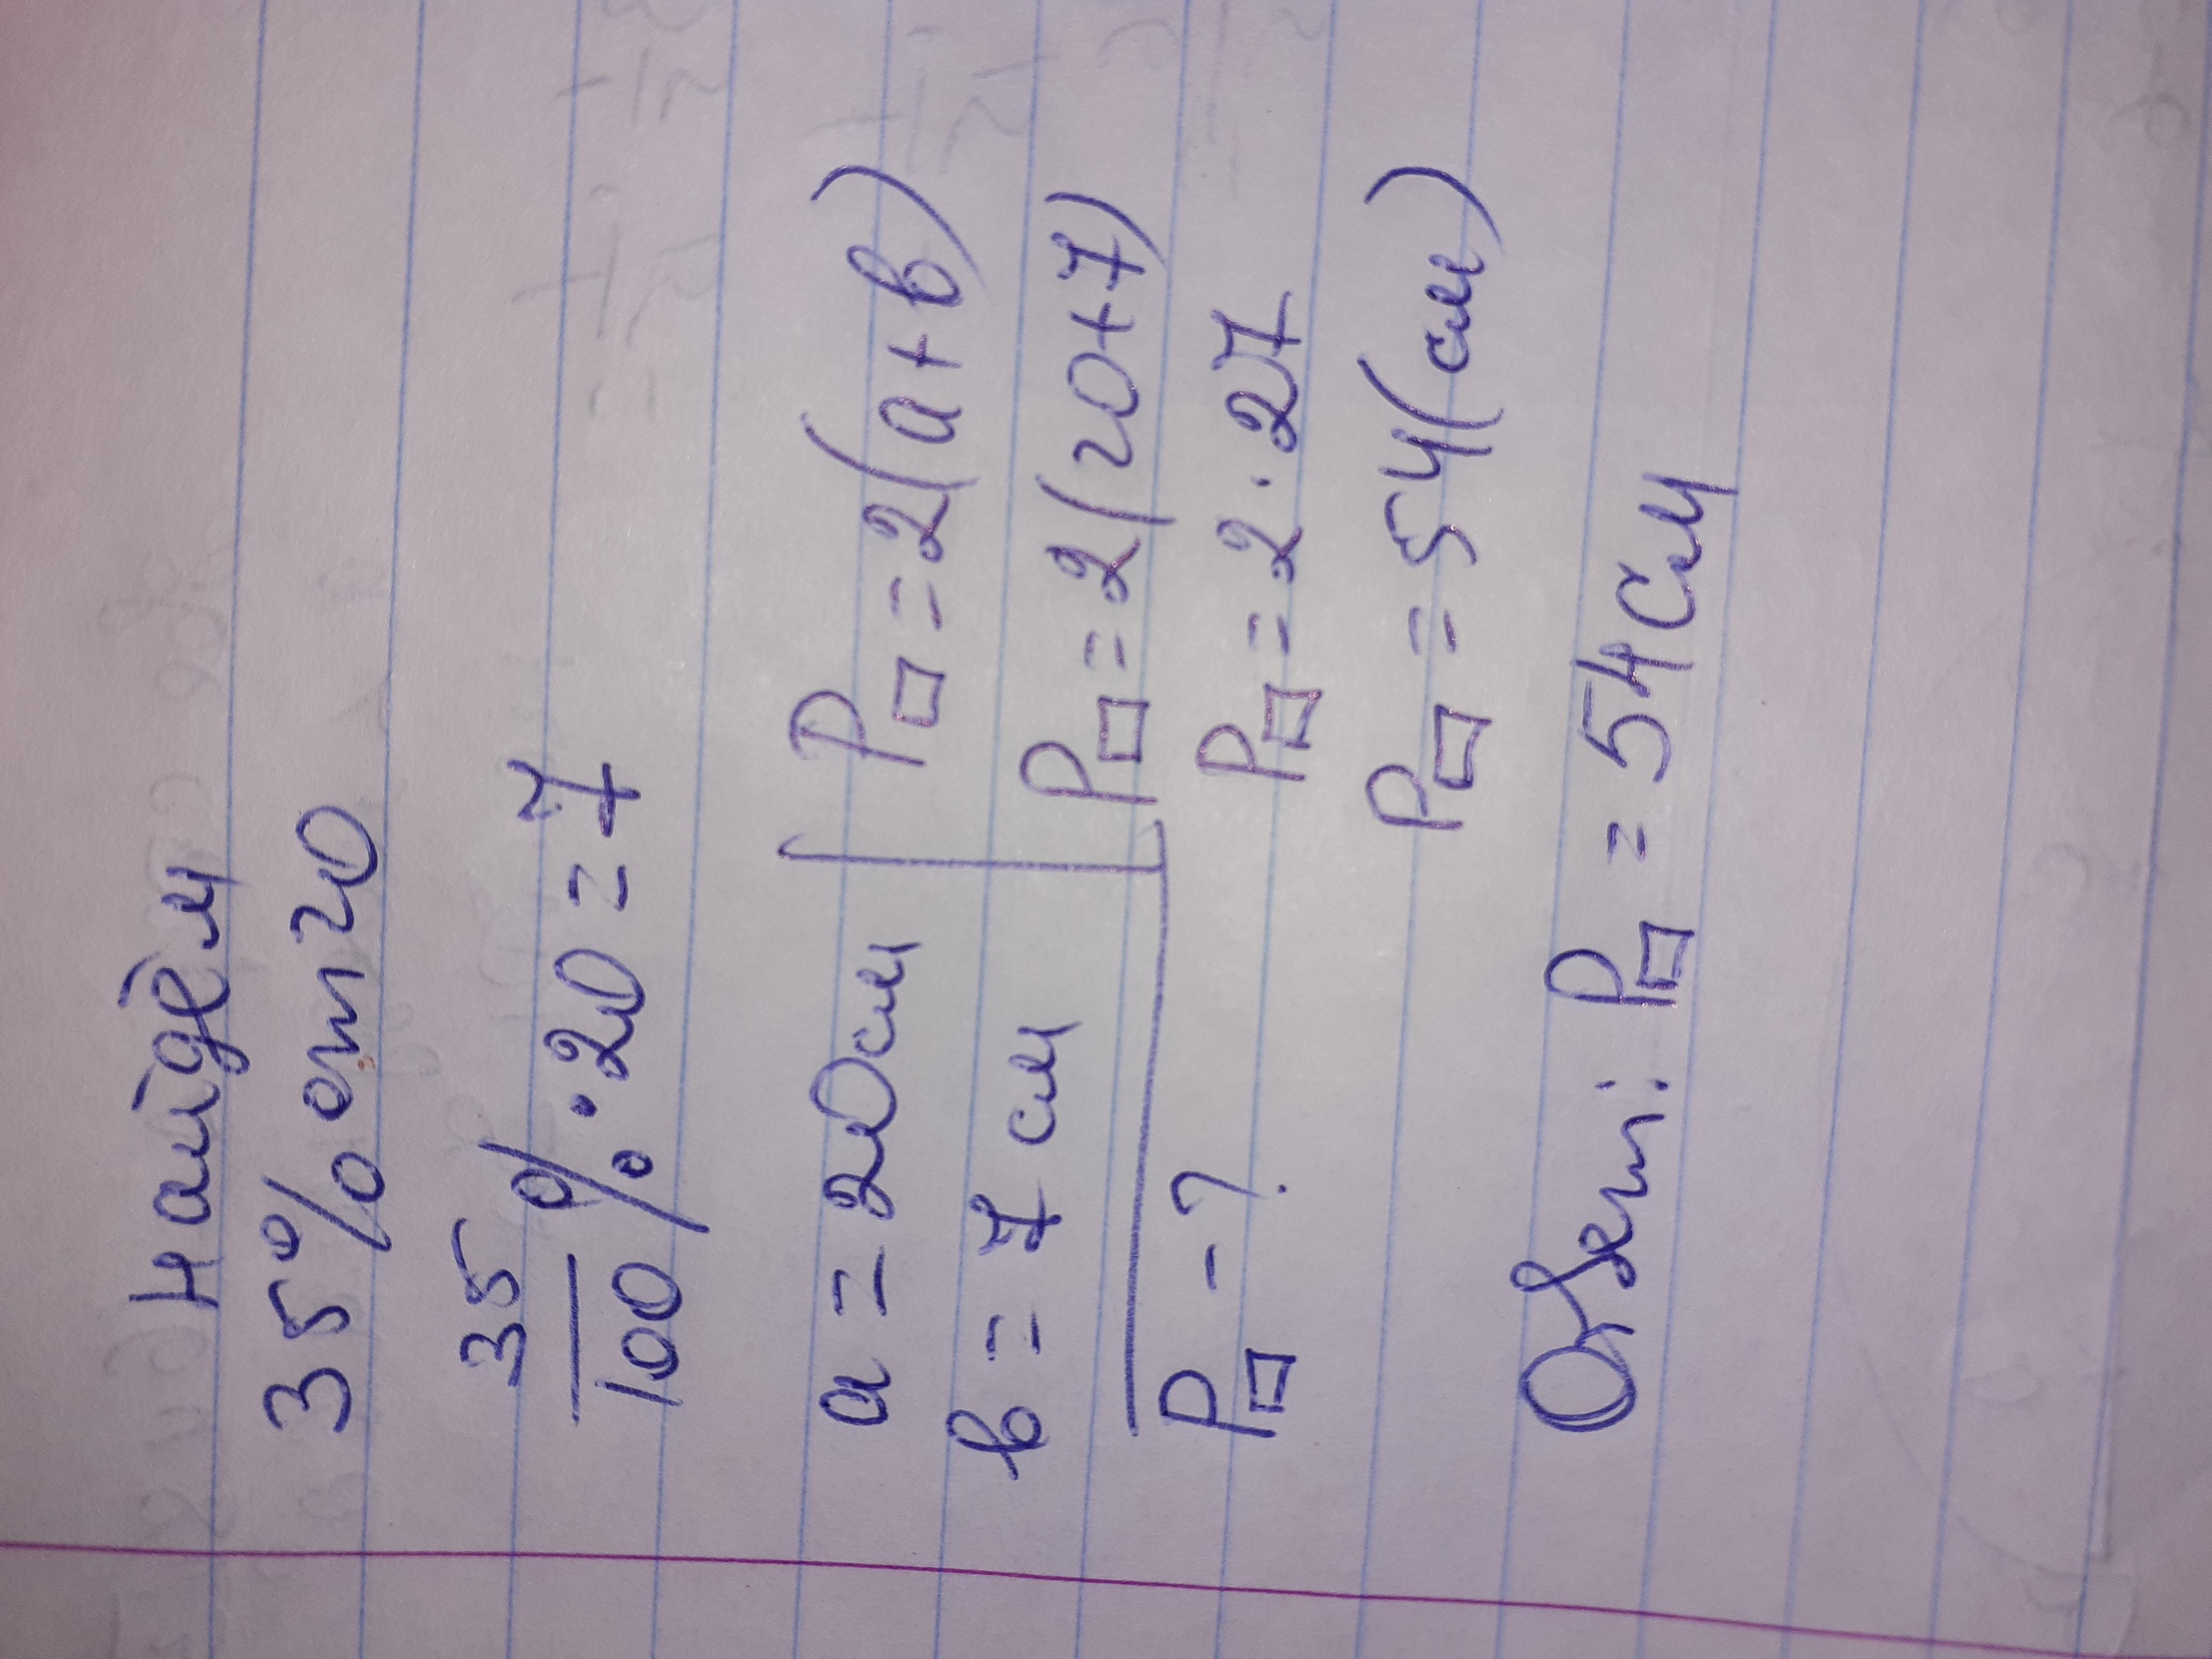 Найдём
35% от 20
35/100 % · 20 = 7
a = 20 см
b = 7 см
P□ - ?
P□ = 2(a + b)
P□ = 2(20+7)
P□ = 2 · 27
P□ = 54 (см)
Ответ: P□ = 54 см